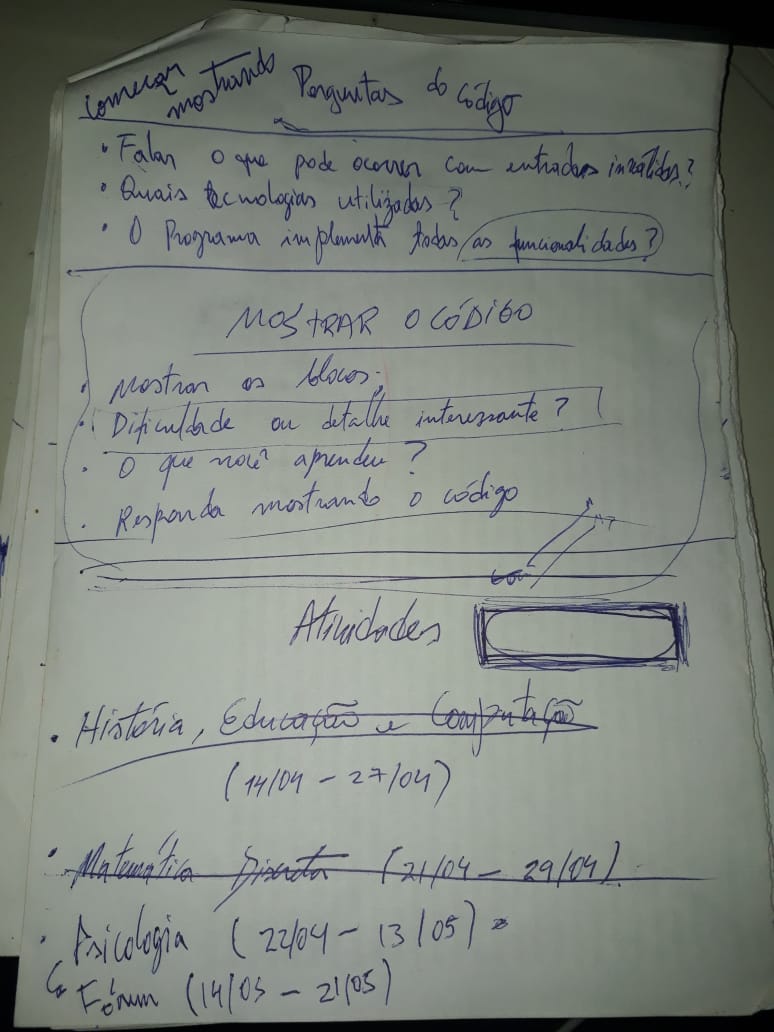 começar mostrando Perguntas do código
• Falar o que pode ocorrer com entradas inválidas?
• Quais tecnologias utilizadas?
• O Programa implementa todas as funcionalidades?
MOSTRAR O CÓDIGO
• Mostrar os blocos;
• Dificuldade ou detalhe interessante?
• O que você aprendeu?
• Responda mostrando o código
Atividades
• História, Educação e Computação
(14/04 - 27/04)
• Matemática Discreta (21/04 - 29/04)
• Psicologia (22/04 - 13/05)
Fórum (14/05 - 21/05)